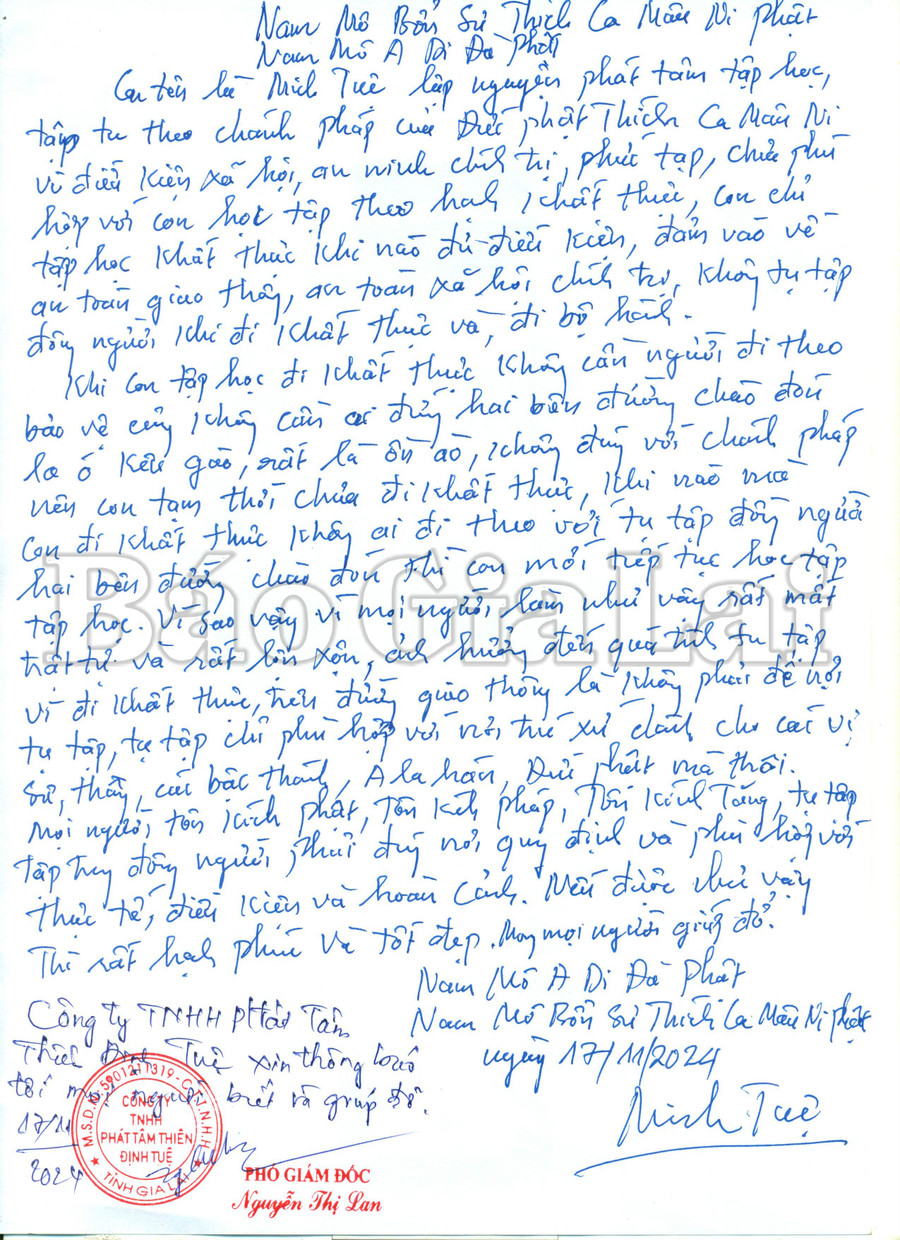 Nam Mô Bổn Sư Thích Ca Mâu Ni Phật
Nam Mô A Di Đà Phật
Con tên là Minh Tuệ lập nguyện phát tâm tập học,
tập tu theo chánh pháp của Đức phật Thích Ca Mâu Ni
vì điều kiện xã hội, an ninh chính trị, phức tạp, chưa phù
hợp với con học tập theo hạnh khất thực, con chỉ
tập học khất thực khi nào đủ điều kiện, đảm vảo về
an toàn giao thông, an toàn xã hội chính trị, không tụ tập
đông người khi đi khất thực và, đi bộ hành.
Khi con tập học đi khất thực không cần người đi theo
bảo vệ cũng không cần ai đứng hai bên đường chào đón
la ó kêu gào, rất là ồn ào, không đúng với chánh pháp
nên con tạm thời chưa đi khất thực, khi nào mà
con đi khất thực không ai đi theo với tụ tập đông người
hai bên đường chào đón thì con mới tiếp tục học tập
tập học. Vì sao vậy vì mọi người làm như vậy rất mất
trật tự và rất lộn xộn, ảnh hưởng đến quá trình tu tập
vì đi khất thực, trên đường giao thông là không phải để nơi
tụ tập, tụ tập chỉ phù hợp với nơi trú xứ dành cho các vị
sư, thầy, các bậc thánh, A la hán, Đức phật mà thôi.
Mọi người tôn kính phật, Tôn kính pháp, Tôn kính Tăng, tụ tập
tập trung đông người phải đúng nơi quy định và phù hợp với
thực tế, điều kiện và hoàn cảnh. Nếu được như vậy
Thì rất hạnh phúc và tốt đẹp. Mong mọi người giúp đỡ.
Nam Mô A Di Đà Phật
Nam Mô Bổn Sư Thích Ca Mâu Ni phật
ngày 17/11/2024
Minh Tuệ
Công ty TNHH Phát Tâm
Thiên Định Tuệ xin thông báo
tới mọi người biết và giúp đỡ.
17/11
2024
M.S.D.N: 5901211319 - C.T.T.N.H.H
CÔNG TY
TNHH
PHÁT TÂM THIÊN
ĐỊNH TUỆ
TỈNH GIA LAI
PHÓ GIÁM ĐỐC
Nguyễn Thị Lan
Báo Gia Lai